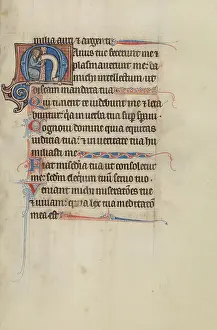 milia auri et argenti
Manus tue fecerunt me et
plasmaverunt me: da
michi intellectum ut
discam mandata tua
Qui timent te videbunt me et leta
buntur: quia in verba tua supsperavi
Cognovi domine quia equitas
iudicia tua: et in veritate tua hu
miliasti me
Fiat misedia tua ut consoletur
me: sedm eloquium tuum servo tuo
Veniant michi miseratões tue
et vivam: quia lex tua meditatio
mea est